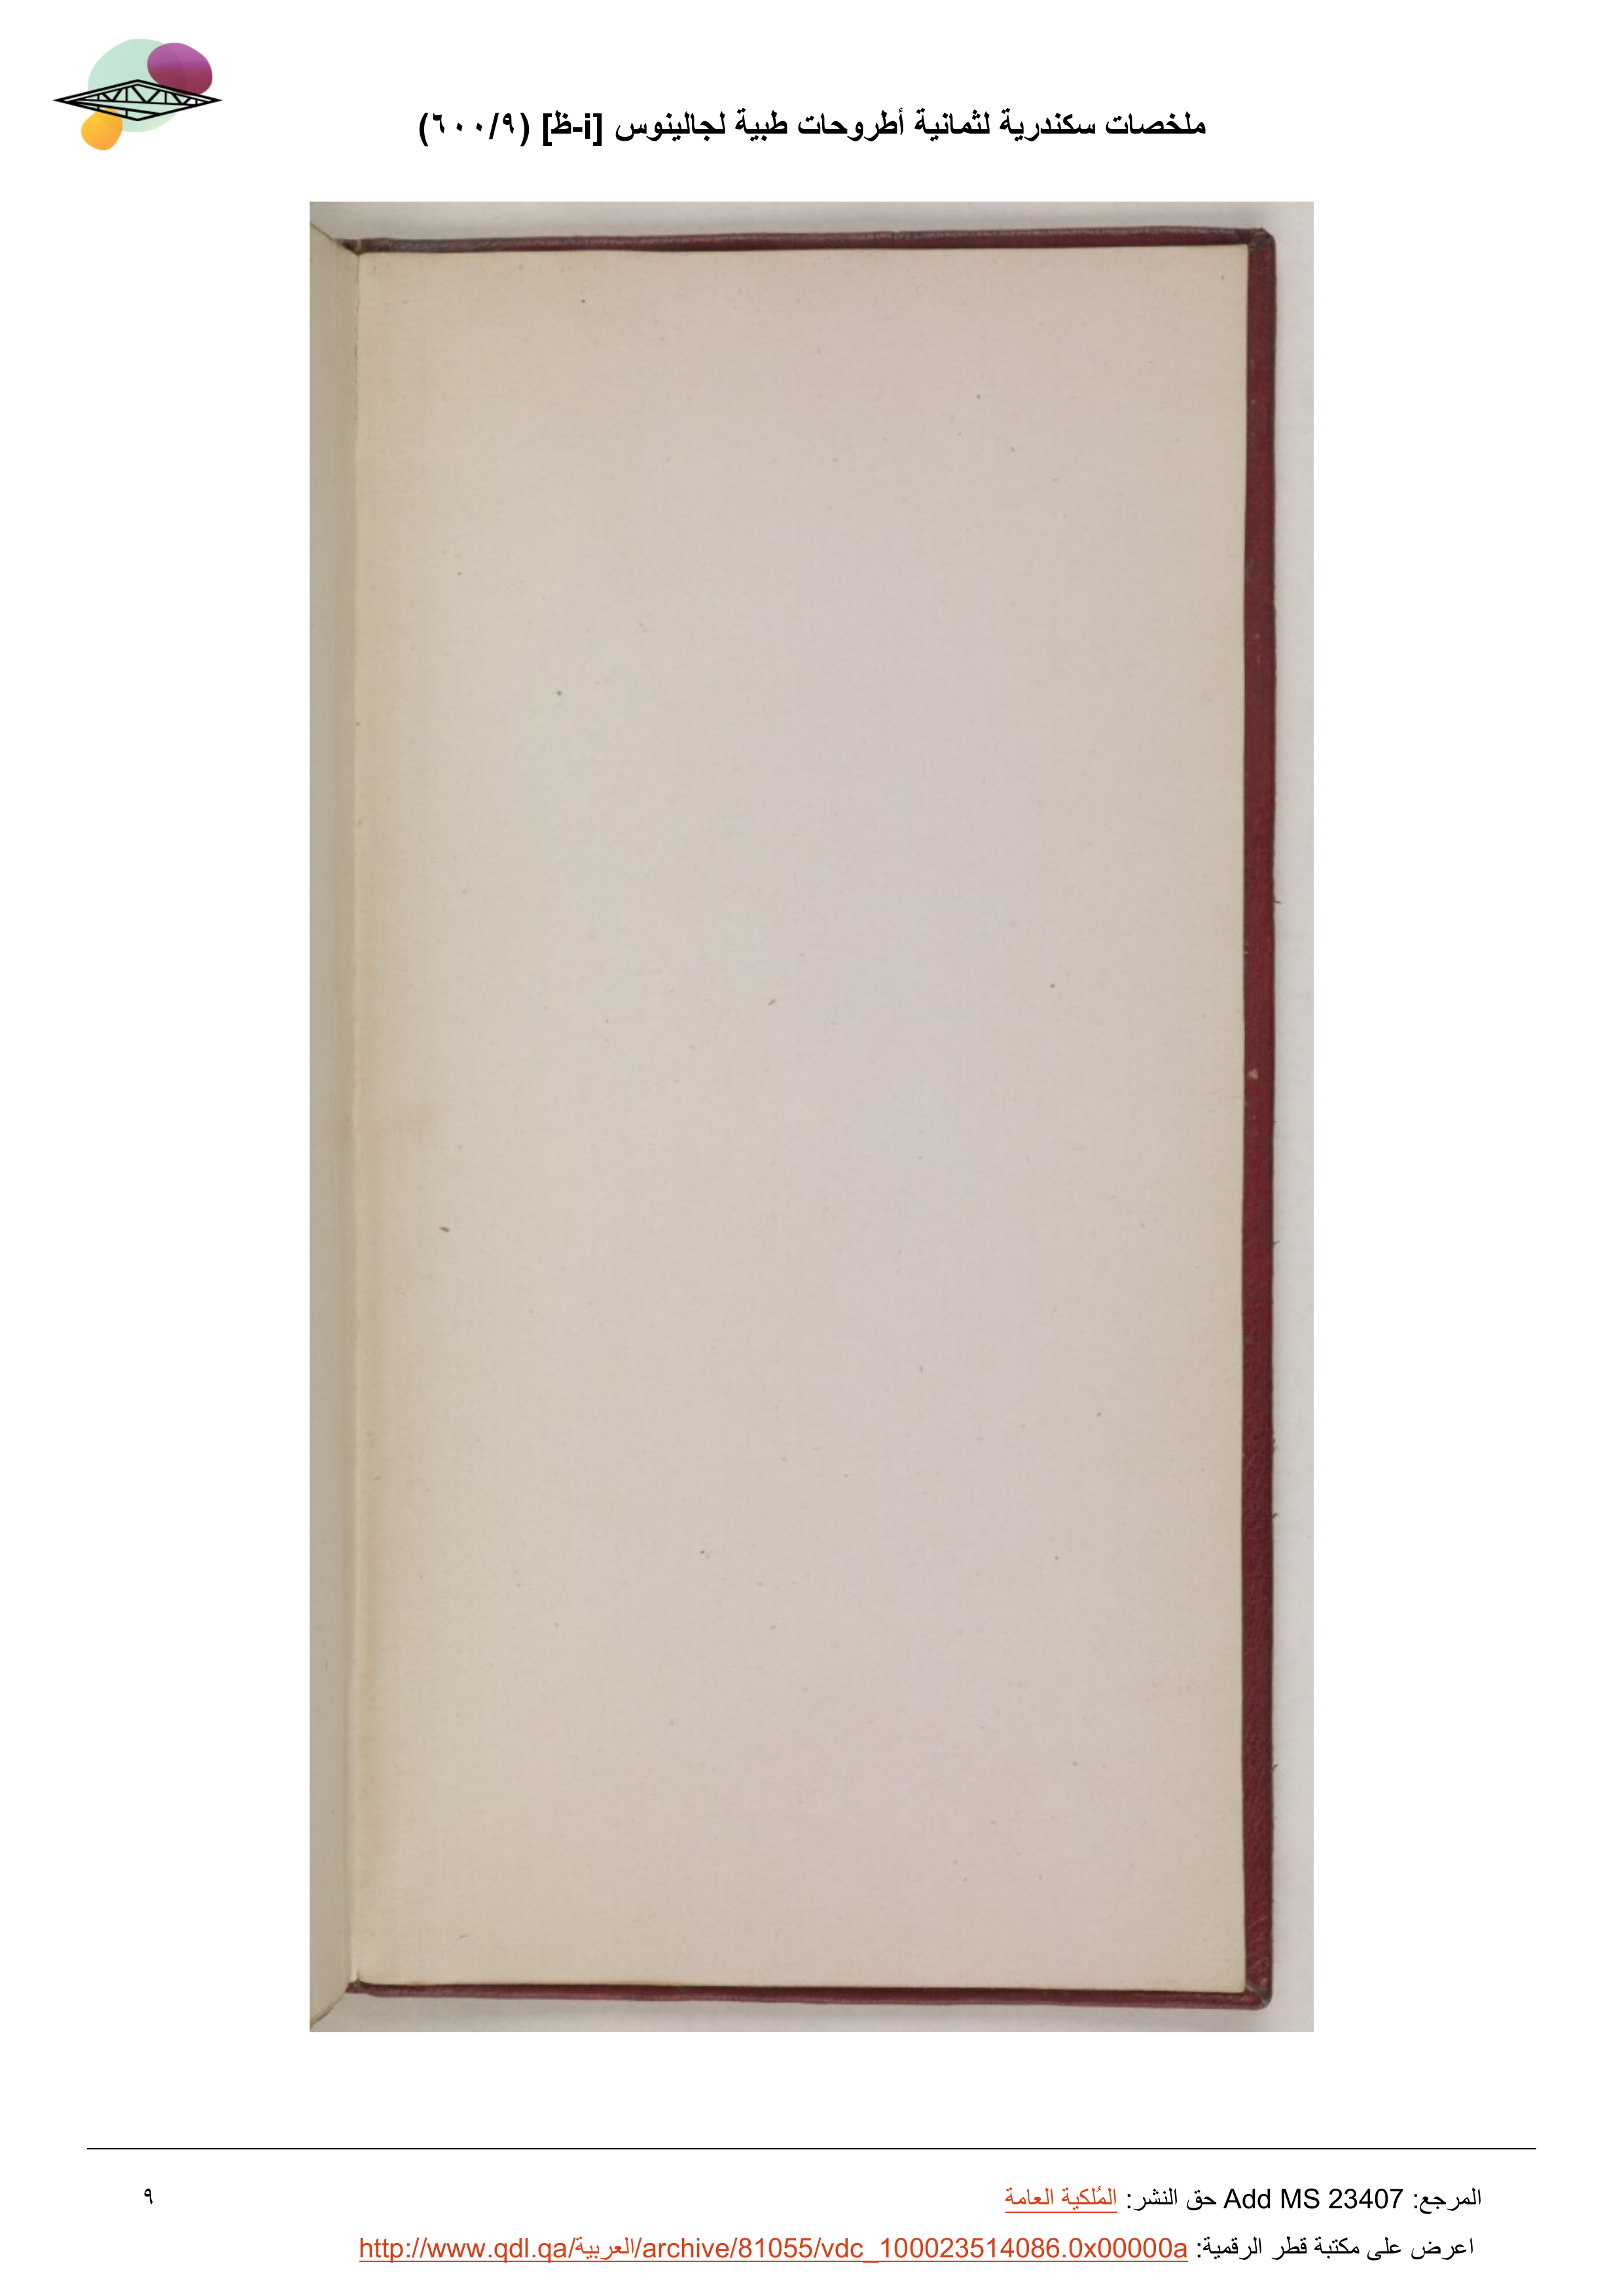 ملخصات سكندرية لثمانية أطروحات طبية لجالينوس [i-ظ] (٦٠٠/٩)
المرجع: Add MS 23407 حق النشر: المُلكية العامة
٩
اعرض على مكتبة قطر الرقمية: http://www.qdl.qa/العربية/archive/81055/vdc_100023514086.0x00000a